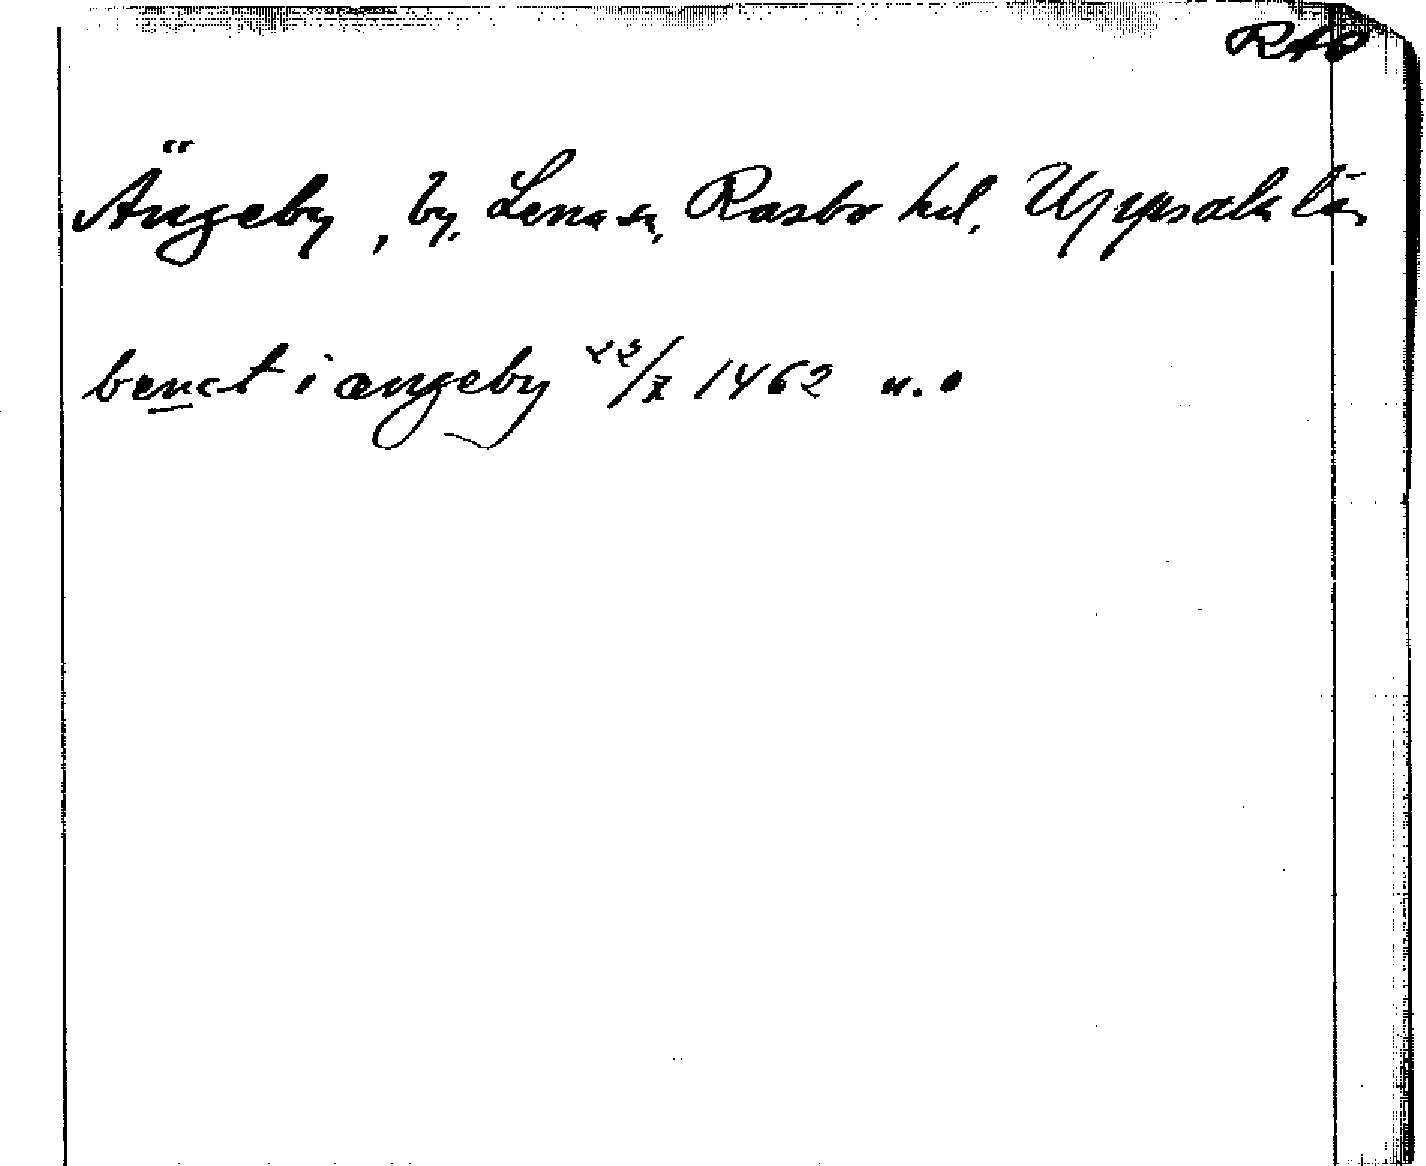 RAO
Ängeby, by, Lena sn, Rasbo hd, Uppsala län
benct i ængeby 22/X 1462 u.o